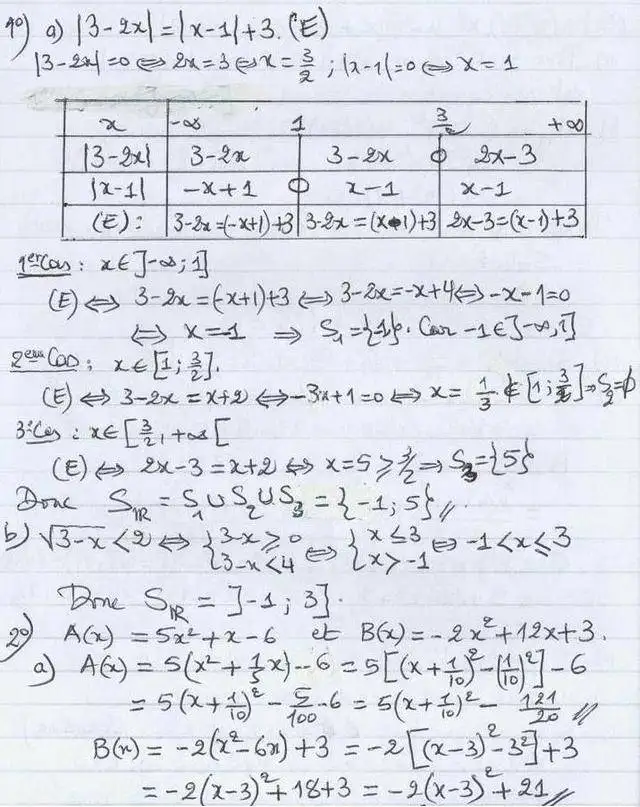 1°) a) |3-2x| = |x-1| + 3. (E)
|3-2x| = 0 ⟺ 2x = 3 ⟺ x = 3/2 ; |x-1| = 0 ⟺ x = 1
x -∞ 1 3/2 +∞
|3-2x| 3-2x 3-2x 0 2x-3
|x-1| -x+1 0 x-1 x-1
(E): 3-2x=(-x+1)+3 3-2x=(x-1)+3 2x-3=(x-1)+3
1er Cas : x∈]-∞;1]
(E) ⟺ 3-2x=(-x+1)+3 ⟺ 3-2x=-x+4 ⟺ -x-1=0
⟺ x=-1 ⇒ S₁={1}. Car -1∈]-∞,1]
2em Cas : x∈[1;3/2].
(E) ⟺ 3-2x=x+2 ⟺ -3x+1=0 ⟺ x=1/3 ∉ [1;3/2] ⇒ S₂=∅
3° Cas : x∈[3/2,+∞[
(E) ⟺ 2x-3=x+2 ⟺ x=5 ≥ 3/2 ⇒ S₃={5}
Donc S_IR = S₁∪S₂∪S₃ = {-1;5}//.
b) √(3-x) < 2 ⟺ {3-x≥0 3-x<4 ⟺ {x≤3 x>-1 ⟺ -1<x≤3
Donc S_IR = ]-1;3].
2°) A(x) = 5x²+x-6 et B(x) = -2x²+12x+3.
a) A(x) = 5(x²+1/5x)-6 = 5[(x+1/10)²-(1/10)²]-6
= 5(x+1/10)² - 5/100 - 6 = 5(x+1/10)² - 121/20 //
B(x) = -2(x²-6x)+3 = -2[(x-3)²-3²]+3
= -2(x-3)²+18+3 = -2(x-3)²+21//